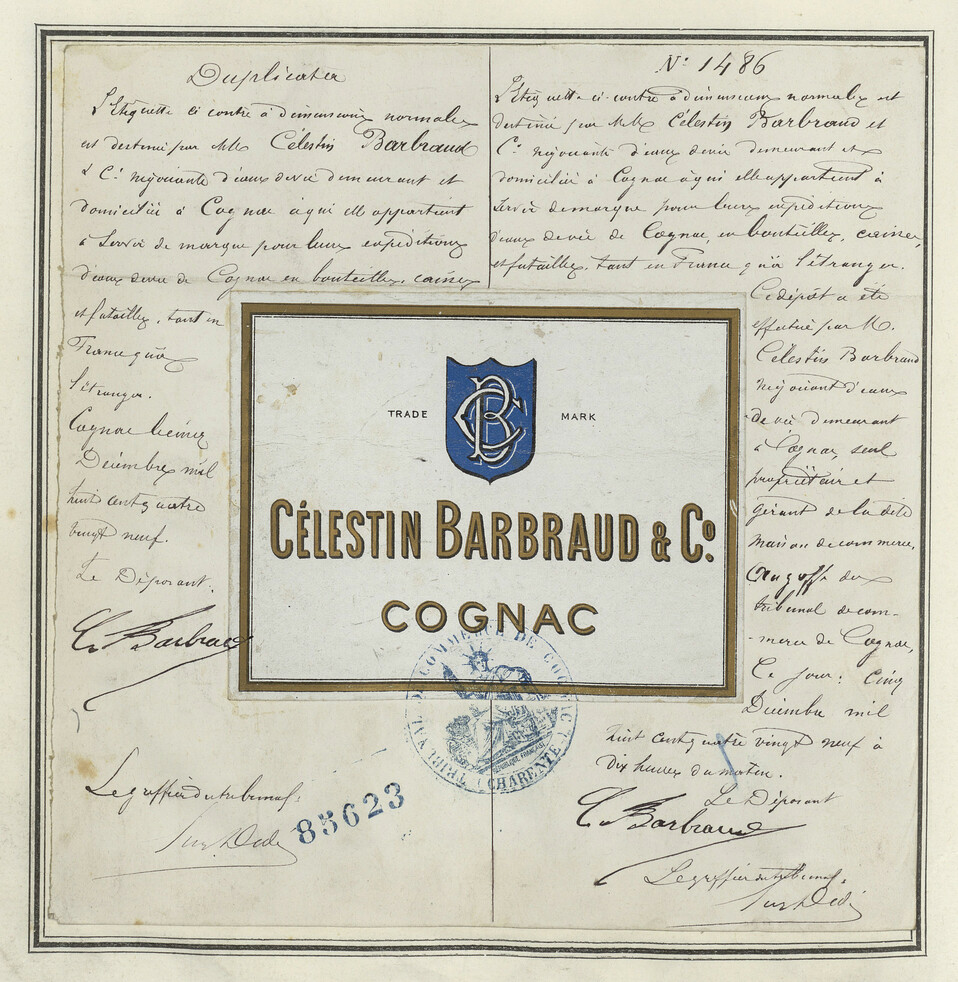 Duplicata
L'Etiquette ci contre à dimensions normales
est destinée par MM. Célestin Barbraud
& Cie négociants d'eaux de vie demeurant et
domiciliés à Cognac à qui elle appartient
à servir de marque pour leurs expéditions
d'eaux de vie de Cognac en bouteilles, caisses
et futailles, tant en
France qu'à
l'étranger.
Cognac le cinq
Décembre mil
huit cent quatre
vingt neuf.
Le Déposant.
C. Barbraud
Le greffier du tribunal:
85623
N° 1486
L'Etiquette ci-contre à dimensions normales est
destinée par MM. Célestin Barbraud et
Cie négociants d'eaux de vie demeurant et
domiciliés à Cognac à qui elle appartient à
servir de marque pour leurs expéditions
d'eaux de vie de Cognac, en bouteilles, caisses,
et futailles, tant en France qu'à l'étranger.
Ce dépôt a été
effectué par M.
Célestin Barbraud
négociant d'eaux
de vie demeurant
à Cognac seul
propriétaire et
gérant de la dite
maison de commerce,
au greffe du
tribunal de com-
-merce de Cognac,
Ce jour: cinq
Décembre mil
huit cent quatre vingt neuf à
dix heures du matin.
Le Déposant
C. Barbraud
Le greffier du tribunal:
TRADE MARK
CB
CÉLESTIN BARBRAUD & Co.
COGNAC
TRIBUNAL DE COMMERCE DE COGNAC
(CHARENTE)
RÉPUBLIQUE FRANÇAISE